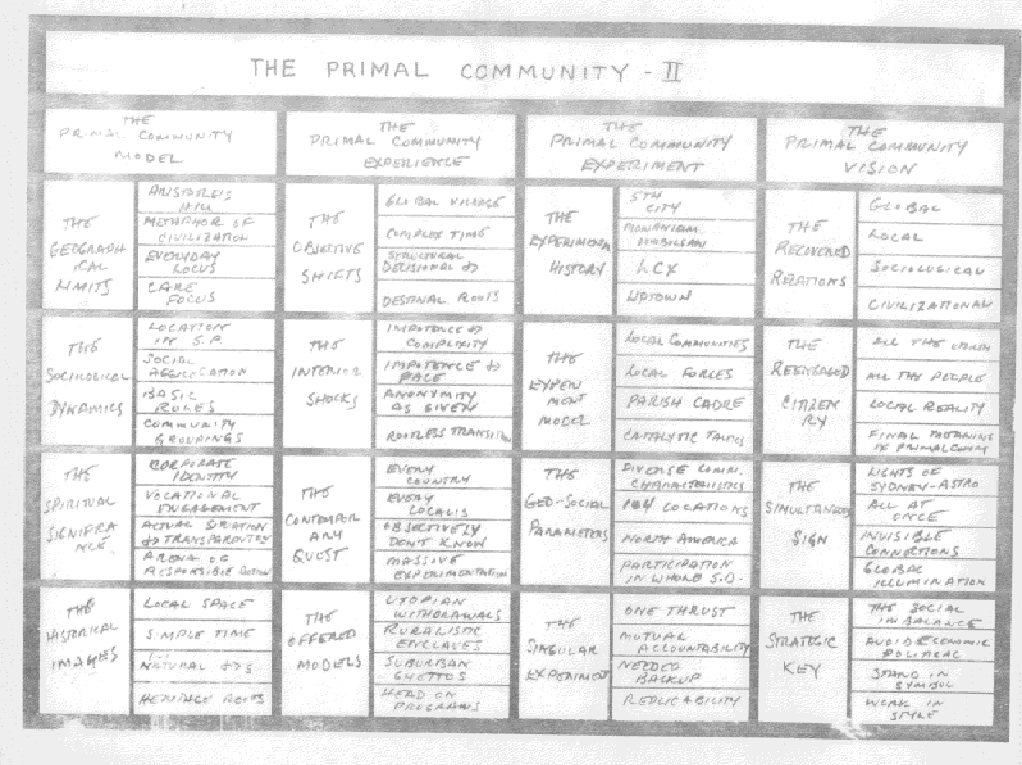 THE PRIMAL COMMUNITY - II
THE
PRIMAL COMMUNITY
MODEL
THE
PRIMAL COMMUNITY
EXPERIENCE
THE
PRIMAL COMMUNITY
EXPERIMENT
THE
PRIMAL COMMUNITY
VISION
THE
GEOGRAPH
ICAL
LIMITS
HILL
METAPHOR OF
CIVILIZATION
EVERYDAY
LOCUS
CARE
FOCUS
THE
OBJECTIVE
SHIFTS
GLOBAL VILLAGE
COMPLEX TIME
STRUCTURAL
DECISIONAL
DESTINAL ROOTS
THE
HISTORY
5TH
CITY
LCX
UPTOWN
THE
RECOVERED
RELATIONS
GLOBAL
LOCAL
SOCIOLOGICAL
THE
SOCIOLOGICAL
DYNAMICS
LOCATION
IN S.P.
SOCIAL
BASIC
COMMUNITY
GROUPINGS
THE
INTERIOR
SHOCKS
IMPOTENCE
COMPLEXITY
IMPOTENCE
PACE
ANONYMITY
AS GIVEN
ROOTLESS
THE
EXPERI
MENT
MODEL
LOCAL COMMUNITIES
LOCAL FORCES
PARISH CADRE
CATALYTIC
THE
REENGAGED
CITIZEN
RY
ALL THE EARTH
ALL THE PEOPLE
LOCAL REALITY
FINAL
THE
SPIRITUAL
SIGNIFICA
NCE
CORPORATE
IDENTITY
VOCATIONAL
ENGAGEMENT
ACTUAL SITUATION
ARENA OF
RESPONSIBLE ACTION
THE
CONTEMPOR
ARY
QUEST
EVERY
COUNTRY
EVERY
LOCALE
OBJECTIVELY
DON'T KNOW
MASSIVE
EXPERIMENTATION
THE
GEO-SOCIAL
PARAMETERS
DIVERSE COMM.
LOCATIONS
NORTH AMERICA
PARTICIPATION
IN WHOLE
THE
SIMULTANEOUS
SIGN
LIGHTS OF
SYDNEY-ASTRO
ALL AT
ONCE
INVISIBLE
CONNECTIONS
GLOBAL
ILLUMINATION
THE
HISTORICAL
IMAGES
LOCAL SPACE
SIMPLE TIME
NATURAL
HERITAGE ROOTS
THE
OFFERED
MODELS
UTOPIAN
WITHDRAWALS
RURALISTIC
ENCLAVES
SUBURBAN
GHETTOS
HEAD ON
PROGRAMS
THE
SINGULAR
EXPERIMENT
ONE THRUST
MUTUAL
ACCOUNTABILITY
NEEDED
BACKUP
REPLICABILITY
THE
STRATEGIC
KEY
THE SOCIAL
IN BALANCE
AVOID ECONOMIC
POLITICAL
STAND IN
SYMBOL
WORK IN
STYLE